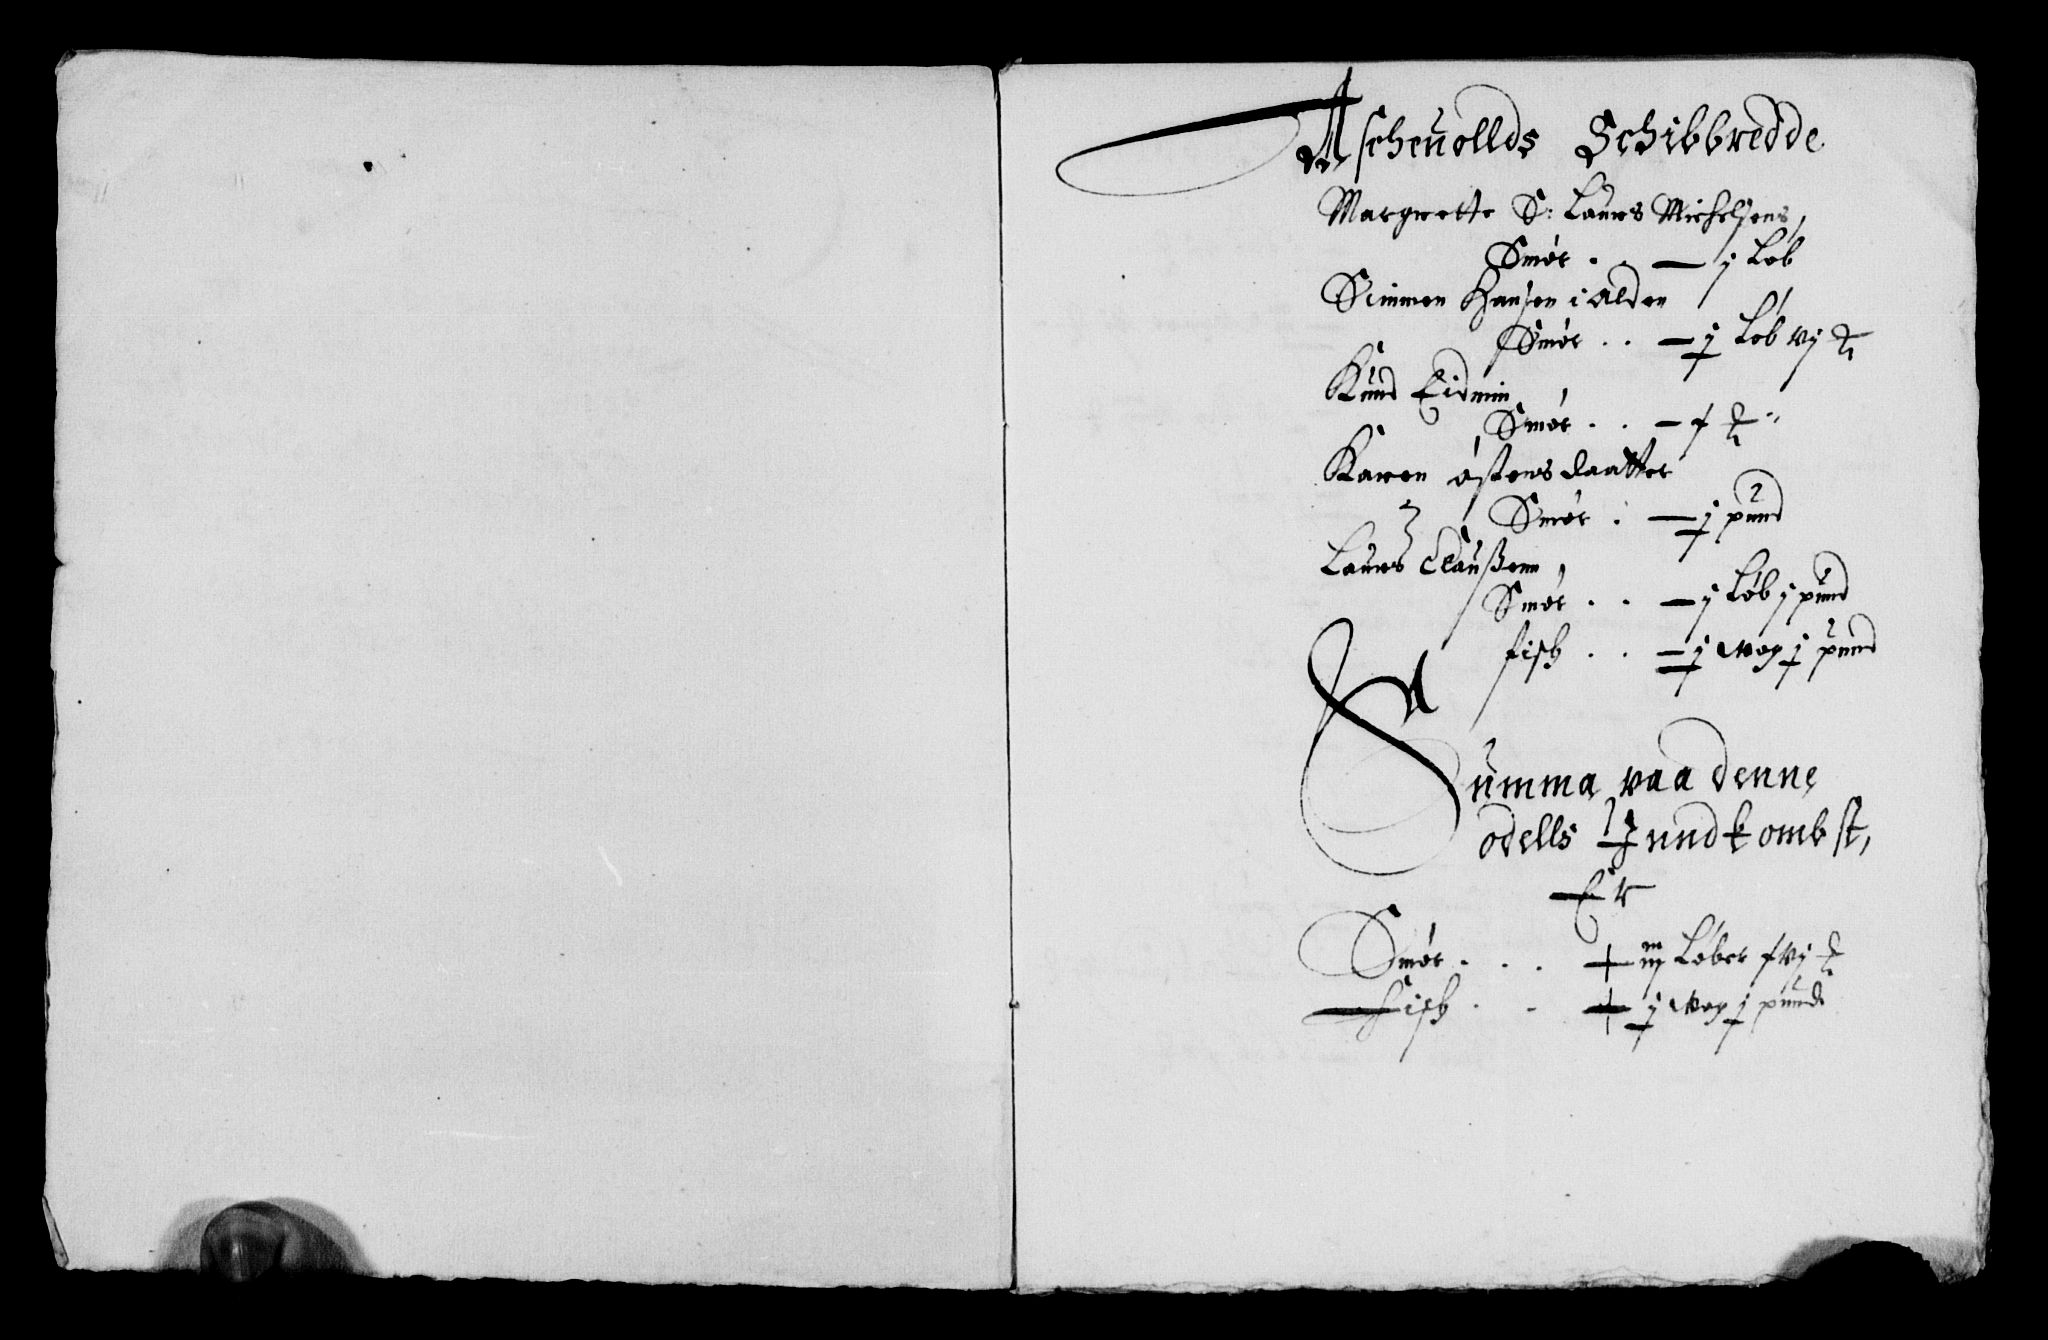 Ascheuollds Schibbredde
Margrette S: Laurs Michelsens,
Smør . . — j Løb
Simmen Hansen i Alden
Smør . . — j Løb vj ℔
Knud Eidnin
Smør . . — f ℔
Karen østensdaatter
Smør . — j pund
Laurs Claußenn,
Smør . . — j Løb j pund
fisk . . — j wog j pund
Summa paa denne
odells Jnndkombst,
Er
Smør . . . iiij Løber f vj ℔
Fisk . . j wog j pund